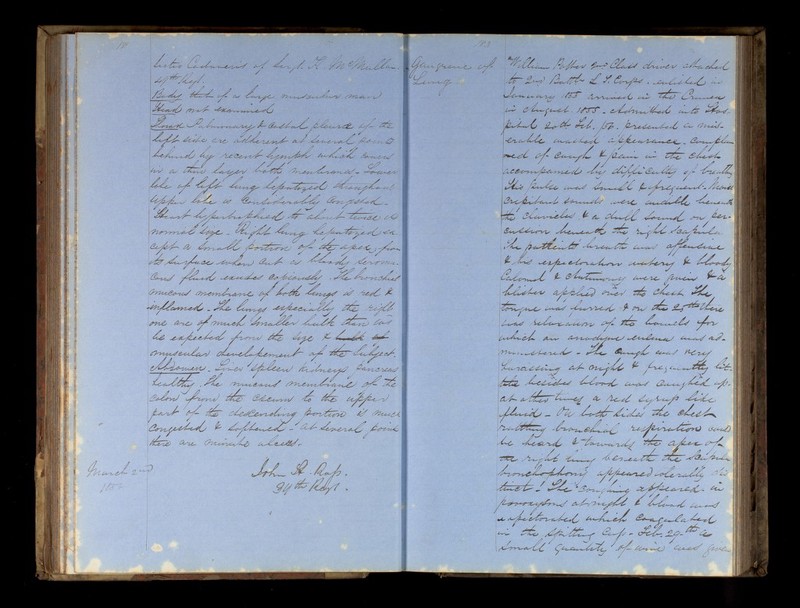 Sectio Cadaveris of Sergt. T. McMullin
94th Regt.
Body that of a large muscular man
Head not examined
Thorax Pulmonary & costal pleurae of the
left side are adherent at several points
behind by recent lymph which covers
in a thin layer both membranes. Lower
lobe of left lung hepatized throughout
upper lobe is considerably congested.
Heart hypertrophied to about twice its
normal size. Right lung hepatized ex-
cept a small portion of the apex, from
its surface when cut a bloody
fluid exudes copiously. The bronchial
mucous membrane of both lungs is red &
inflamed. The lungs especially the right
one are of much smaller bulk than could
be expected from the size &
muscular developement of the subject.
Abdomen. Liver spleen kidneys pancreas
healthy. The mucous membrane of the
colon from the cæcum to the upper
part of the descending portion is much
congested & softened - at several points
there are minute ulcers.
March 2nd
John R. Ross.
94th Regt.
Gangrene of
Lung
William 2nd Class driver attached
to 2nd Battn. L. T. Corps. enlisted in
January 1855 arrived in the Crimea
in August 1855. Admitted into Hos-
pital 20th Feb. 56. presented a mis-
erable wasted appearance. Complain-
ed of cough & pain in the chest
accompanied by difficulty of breathing
His pulse was small & frequent. Moist
crepitant sounds were audible beneath
the clavicles & a dull sound on per-
cussion beneath the right scapula.
The patient's breath was offensive
& his expectoration watery & bloody
Calomel & Antimony were given & a
blister applied over the chest. The
tongue was furred & on the 25th there
was relaxation of the bowels for
which an anodyne enema was ad-
ministered. The cough was very
harassing at night & frequently
besides blood was coughed up.
at other times a red syrup like
fluid. On both sides the chest
rattling bronchial respiration could
be heard & towards the apex of
the right lung beneath the
bronchophony appeared tolerably dis-
tinct. The coughing appeared in
paroxysms at night & blood was
expectorated which coagulated
in the spitting cup. Feb. 29th a
small quantity of wine was given